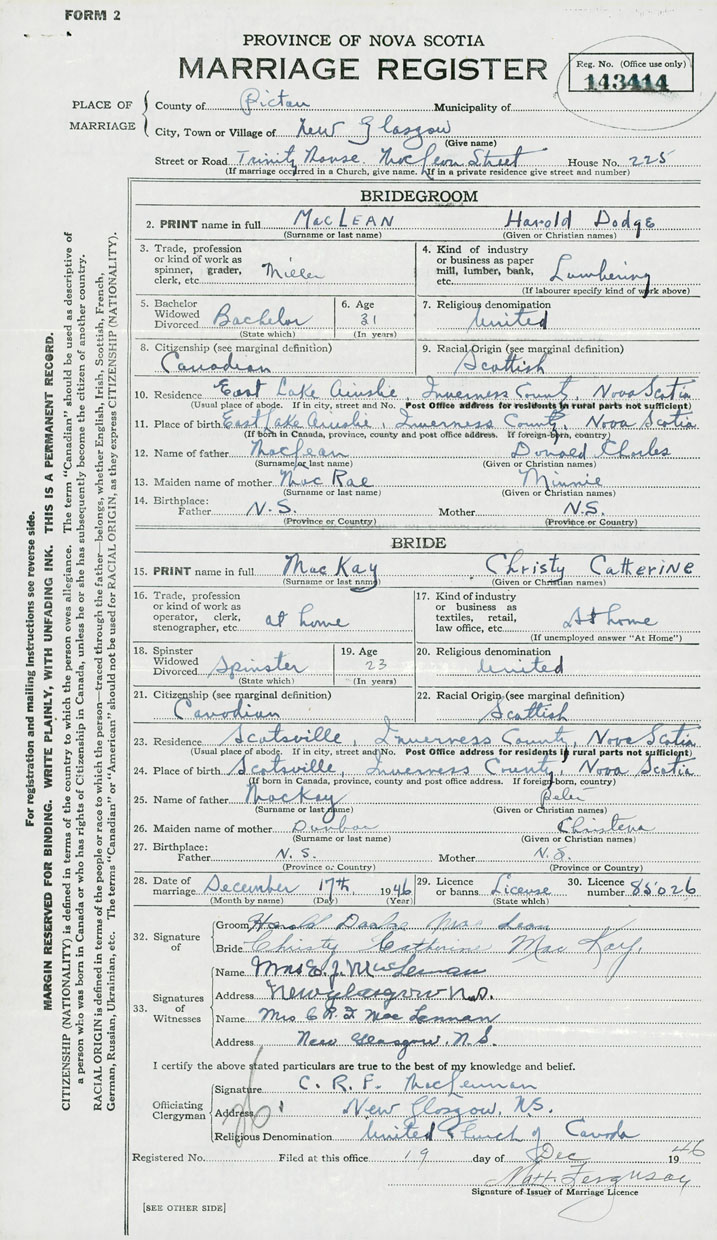 FORM 2
PROVINCE OF NOVA SCOTIA
MARRIAGE REGISTER
Reg. No. (Office use only)
143414
PLACE OF MARRIAGE
County of Pictou Municipality of
City, Town or Village of New Glasgow
(Give name)
Street or Road Trinity Manse. MacLean Street House No. 225
(If marriage occurred in a Church, give name. If in a private residence give street and number)
BRIDEGROOM
2. PRINT name in full MacLEAN Harold Dodge
(Surname or last name) (Given or Christian names)
3. Trade, profession or kind of work as spinner, grader, clerk, etc. Miller
4. Kind of industry or business as paper mill, lumber, bank, etc. Lumbering
(If labourer specify kind of work above)
5. Bachelor Widowed Divorced Bachelor
(State which)
6. Age 31
(In years)
7. Religious denomination United
8. Citizenship (see marginal definition) Canadian
9. Racial Origin (see marginal definition) Scottish
10. Residence East Lake Ainslie, Inverness County, Nova Scotia
(Usual place of abode. If in city, street and No. Post Office address for residents in rural parts not sufficient)
11. Place of birth East Lake Ainslie, Inverness County, Nova Scotia
(If born in Canada, province, county and post office address. If foreign-born, country)
12. Name of father MacLean Donald Charles
(Surname or last name) (Given or Christian names)
13. Maiden name of mother MacRae Minnie
(Surname or last name) (Given or Christian names)
14. Birthplace: Father N.S. Mother N.S.
(Province or Country) (Province or Country)
BRIDE
15. PRINT name in full MacKay Christy Catherine
(Surname or last name) (Given or Christian names)
16. Trade, profession or kind of work as operator, clerk, stenographer, etc. at home
17. Kind of industry or business as textiles, retail, law office, etc. At home
(If unemployed answer "At Home")
18. Spinster Widowed Divorced Spinster
(State which)
19. Age 23
(In years)
20. Religious denomination United
21. Citizenship (see marginal definition) Canadian
22. Racial Origin (see marginal definition) Scottish
23. Residence Scotsville, Inverness County, Nova Scotia
(Usual place of abode. If in city, street and No. Post Office address for residents in rural parts not sufficient)
24. Place of birth Scotsville, Inverness County, Nova Scotia
(If born in Canada, province, county and post office address. If foreign-born, country)
25. Name of father MacKay Peter
(Surname or last name) (Given or Christian names)
26. Maiden name of mother Dunbar Christena
(Surname or last name) (Given or Christian names)
27. Birthplace: Father N.S. Mother N.S.
(Province or Country) (Province or Country)
28. Date of marriage December 17th, 1946
(Month by name) (Day) (Year)
29. Licence or banns License
(State which)
30. Licence number 85026
32. Signature of
Groom Harold Dodge MacLean
Bride Christy Catherine MacKay.
33. Signatures of Witnesses
Name Mrs E. J. MacLennan
Address New Glasgow N.S.
Name Mrs C R F MacLennan
Address New Glasgow, N.S.
I certify the above stated particulars are true to the best of my knowledge and belief.
Officiating Clergyman
Signature C. R. F. MacLennan
Address New Glasgow, N.S.
Religious Denomination United Church of Canada
Registered No. Filed at this office 19 day of Dec 1946
Matt Ferguson
Signature of Issuer of Marriage Licence
[SEE OTHER SIDE]
For registration and mailing instructions see reverse side.
MARGIN RESERVED FOR BINDING. WRITE PLAINLY, WITH UNFADING INK. THIS IS A PERMANENT RECORD.
CITIZENSHIP (NATIONALITY) is defined in terms of the country to which the person owes allegiance. The term "Canadian" should be used as descriptive of
a person who was born in Canada or who has rights of Citizenship in Canada, unless he or she has subsequently become the citizen of another country.
RACIAL ORIGIN is defined in terms of the people or race to which the person—traced through the father—belongs, whether English, Irish, Scottish, French,
German, Russian, Ukrainian, etc. The terms "Canadian" or "American" should not be used for RACIAL ORIGIN, as they express CITIZENSHIP (NATIONALITY).